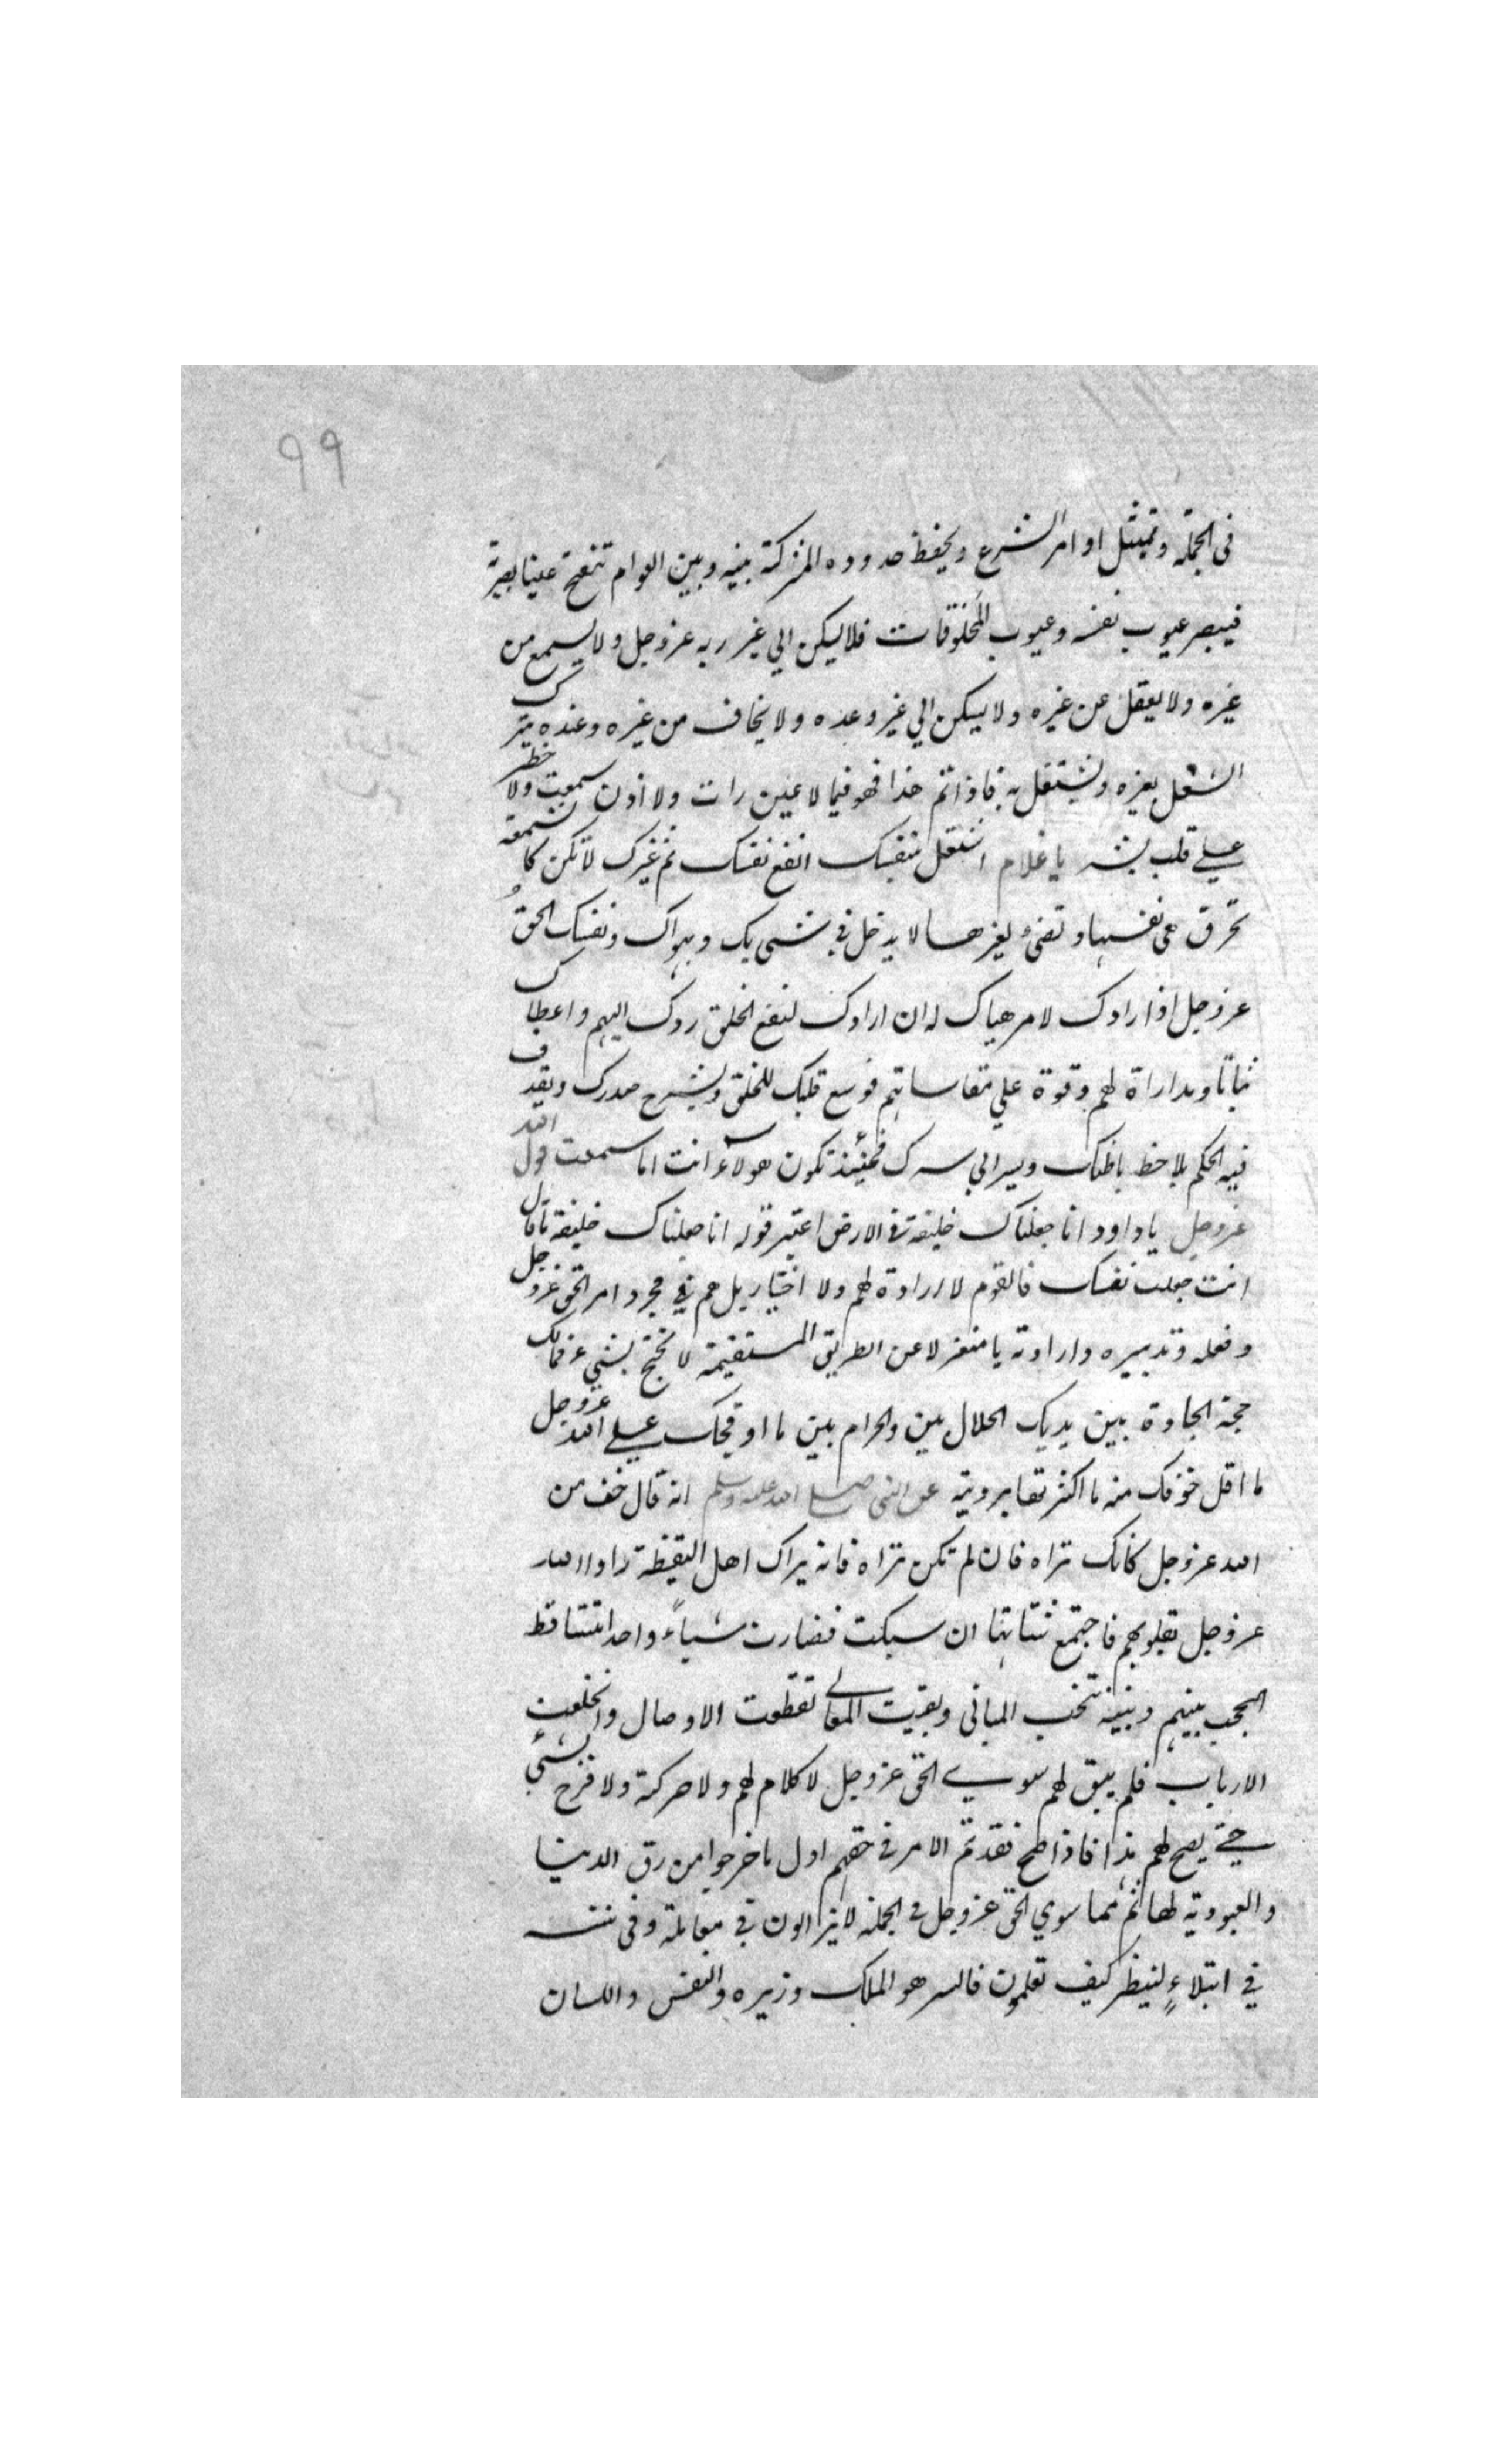 ٩٩
فى الجملة وتمتثل اوامر الشرع ويحفظ حدوده المشتركة بينه وبين العوام تنفتح عينا بصيرة
فيبصر عيوب نفسه وعيوب المخلوقات فلا يسكن الي غير ربه عزوجل ولا يسمع من
غيره ولا يعقل عن غيره ولا يسكن الي غير وعده ولا يخاف من غيره وعنده يترك
الشغل بغيره ويشتغل به فاذا تم هذا فهو فيما لا عين رات ولا اذن سمعت ولا خطر
علي قلب بشر يا غلام اشتغل بنفسك انفع نفسك ثم غيرك لا تكن كا لشمعة
تحرق هى نفسها وتضئ لغيرها لا يدخل في شى بك وبهواك ونفسك الحق
عزوجل اذا ارادك لامر هياك له ان ارادك لنفع الخلق ردك اليهم واعطاك
ثباتا ومداراة لهم وقوة علي مقاساتهم فوسع قلبك للخلق ويشرح صدرك ويقذف
فيه الحكم يلاحظ باطنك ويسر الي سرك فحينئذ تكون هولاء انت اما سمعت قول الله
عزوجل يا داود انا جعلناك خليفة في الارض اعتبر قوله انا جعلناك خليفة ما قال
انت جعلت نفسك فالقوم لا ارادة لهم ولا اختيار بل هم في مجرد امر الحق عزوجل
وفعله وتدبيره وارادته يا منعزلا عن الطريق المستقيمة لا تحتج بشيء فمالك
حجة الجادة بين يديك الحلال بين والحرام بين ما اوقحك علي الله عزوجل
ما اقل خوفك منه ما اكثر برويته عن النبي صلى الله عليه وسلم انه قال خف من
الله عزوجل كانك تراه فان لم تكن تراه فانه يراك اهل اليقظة راوا الله
عزوجل بقلوبهم فاجتمع شتاتها ان سبكت فصارت شياءً واحدا تتساقط
الحجب بينهم وبينه المبانى وبقيت المعاني تقطعت الاوصال وانخلعت
الارباب فلم يبق لهم سوي الحق عزوجل لا كلام لهم ولا حركة ولا فرح بشئي
حتي يصح لهم هذا فاذا صح فقد تم الامر في حقهم اول ما خرجوا من رق الدنيا
والعبودية لها ثم مما سوي الحق عزوجل في الجملة لا يزالون في وفى
في ابتلاءٍ لينظر كيف تعلمون فالسر هو الملك وزيره والنفس واللسان